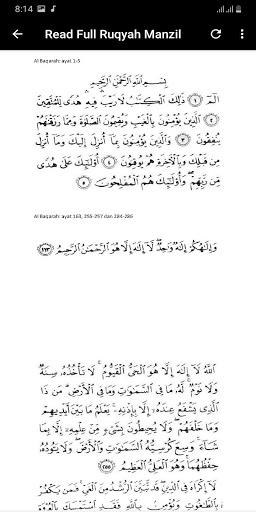 8:14
Read Full Ruqyah Manzil
Al Baqarah: ayat 1-5
بِسْمِ اللَّهِ الرَّحْمَٰنِ الرَّحِيمِ
الٓمٓ ﴿١﴾ ذَٰلِكَ الْكِتَٰبُ لَا رَيْبَ فِيهِ هُدًى لِّلْمُتَّقِينَ
﴿٢﴾ الَّذِينَ يُؤْمِنُونَ بِالْغَيْبِ وَيُقِيمُونَ الصَّلَوٰةَ وَمِمَّا رَزَقْنَٰهُمْ
يُنفِقُونَ ﴿٣﴾ وَالَّذِينَ يُؤْمِنُونَ بِمَا أُنزِلَ إِلَيْكَ وَمَا أُنزِلَ
مِن قَبْلِكَ وَبِالْآخِرَةِ هُمْ يُوقِنُونَ ﴿٤﴾ أُو۟لَٰٓئِكَ عَلَىٰ هُدًى
مِّن رَّبِّهِمْ وَأُو۟لَٰٓئِكَ هُمُ الْمُفْلِحُونَ ﴿٥﴾
Al Baqarah: ayat 163, 255-257 dan 284-286
وَإِلَٰهُكُمْ إِلَٰهٌ وَٰحِدٌ لَّا إِلَٰهَ إِلَّا هُوَ الرَّحْمَٰنُ الرَّحِيمُ ﴿١٦٣﴾
اللَّهُ لَا إِلَٰهَ إِلَّا هُوَ الْحَىُّ الْقَيُّومُ لَا تَأْخُذُهُۥ سِنَةٌ
وَلَا نَوْمٌ لَّهُۥ مَا فِى السَّمَٰوَٰتِ وَمَا فِى الْأَرْضِ مَن ذَا
الَّذِى يَشْفَعُ عِندَهُۥٓ إِلَّا بِإِذْنِهِۦ يَعْلَمُ مَا بَيْنَ أَيْدِيهِمْ
وَمَا خَلْفَهُمْ وَلَا يُحِيطُونَ بِشَىْءٍ مِّنْ عِلْمِهِۦٓ إِلَّا بِمَا
شَآءَ وَسِعَ كُرْسِيُّهُ السَّمَٰوَٰتِ وَالْأَرْضَ وَلَا يَـُٔودُهُۥ
حِفْظُهُمَا وَهُوَ الْعَلِىُّ الْعَظِيمُ ﴿٢٥٥﴾
لَآ إِكْرَاهَ فِى الدِّينِ قَد تَّبَيَّنَ الرُّشْدُ مِنَ الْغَىِّ فَمَن يَكْفُرْ
بِالطَّٰغُوتِ وَيُؤْمِن بِاللَّهِ فَقَدِ اسْتَمْسَكَ بِالْعُرْوَةِ